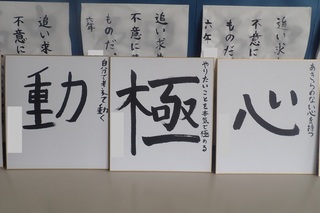 追い求め
不意に
追い求め
不意に
ものだ
六年
追い求
不意に
ものだ
六年
動
自分で考えて動く
極
やりたいことを本気で極める
心
あきらめない心を持つ